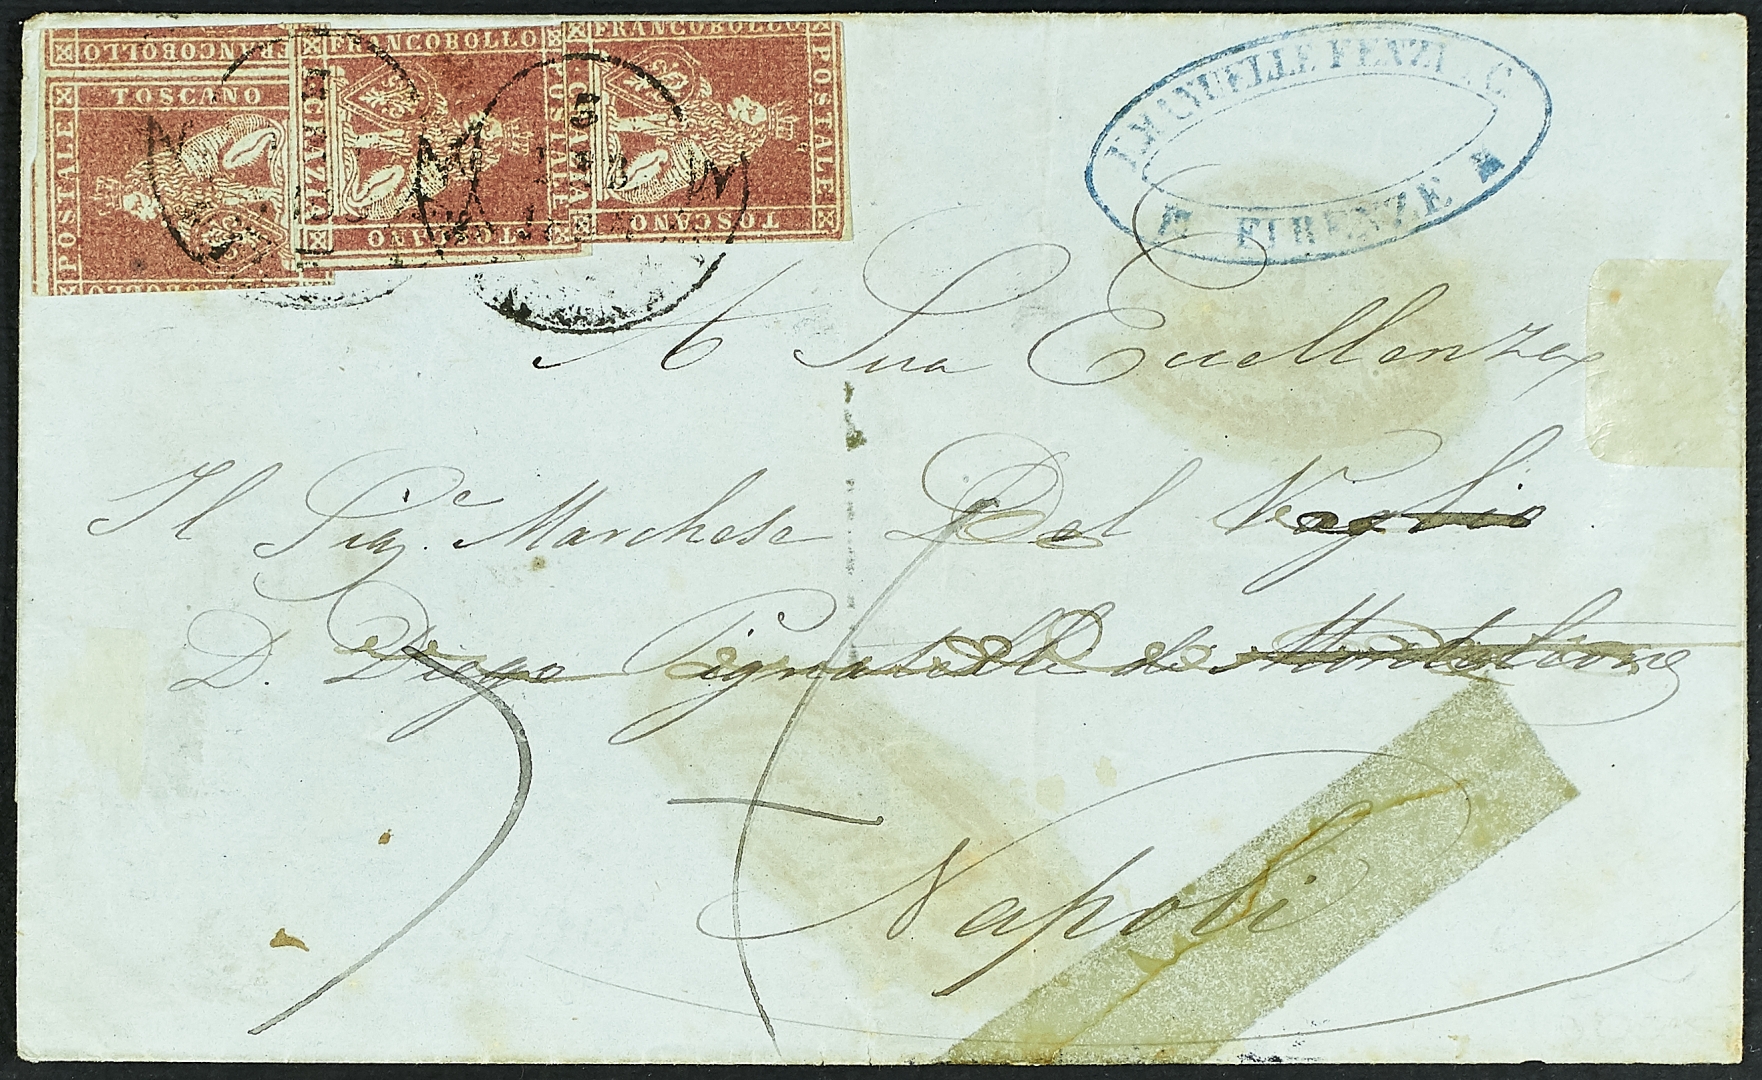 FRANCOBOLLO
TOSCANO
POSTALE
FRANCOBOLLO
CRAZIE
TOSCANO
FRANCOBOLLO
POSTALE
CRAZIE
TOSCANO
5
EMANUELLE FENZI & C.
FIRENZE
A Sua Eccellenza
Il Sigr. Marchese Del Veglio
D. Diego Pignatelli di Monteleone
Napoli